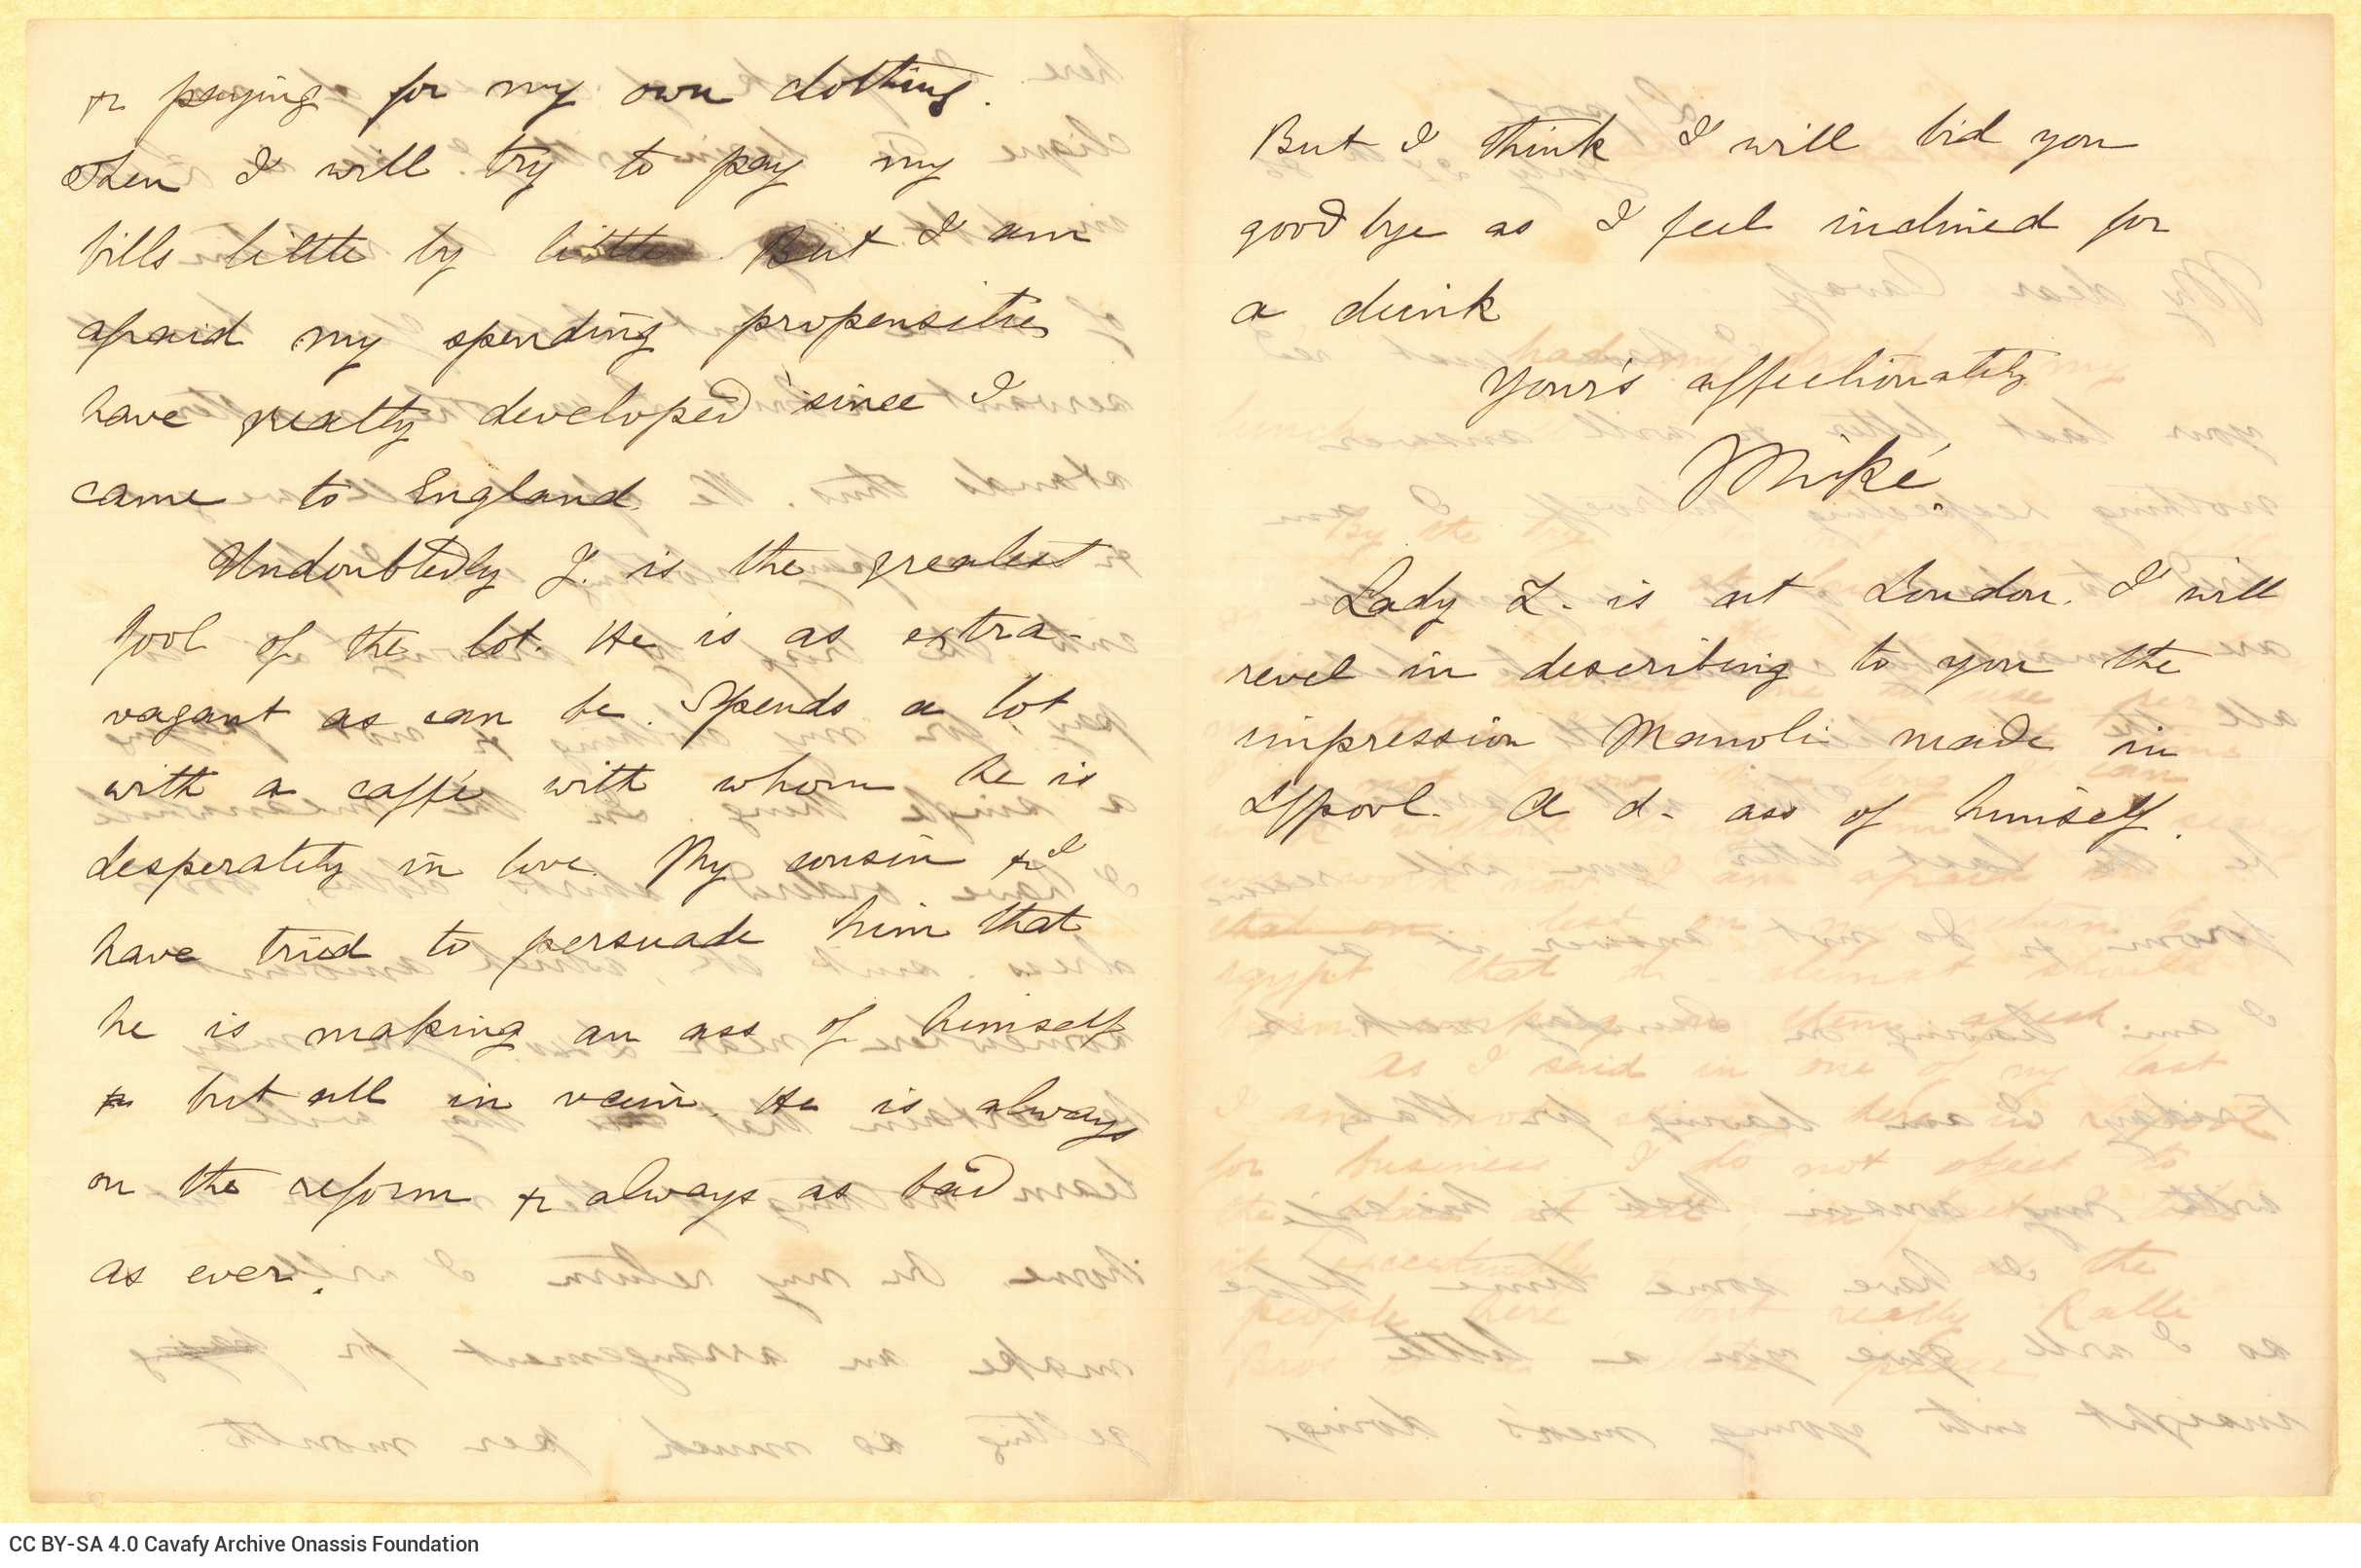 & paying for my own clothing.
Then I will try to pay my
bills little by little. But I am
afraid my spending propensities
have greatly developed since I
came to England.
Undoubtedly J. is the greatest
fool of the lot. He is as extra-
vagant as can be. Spends a lot
with a caffé with whom he is
desperately in love. My cousin & I
have tried to persuade him that
he is making an ass of himself
& but all in vain. He is always
on the reform & always as bad
as ever.
But I think I will bid you
good bye as I feel inclined for
a drink
Your's affectionately
Miké
Lady Z. is at London. I will
revel in describing to you the
impression Manoli made in
L'pool. A d- ass of himself.
CC BY-SA 4.0 Cavafy Archive Onassis Foundation